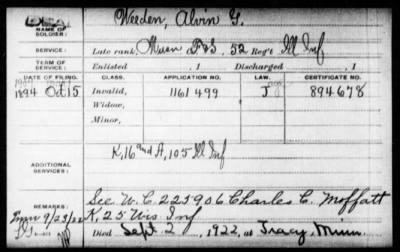 Dead
NAME OF SOLDIER: Weeden, Alvin G.
SERVICE: Late rank, Musn F&S, 52 Reg't Ill Inf
TERM OF SERVICE: Enlisted , 1 Discharged , 1
DATE OF FILING. CLASS. APPLICATION NO. LAW. CERTIFICATE NO.
1894 Oct 15 Invalid, 1161 499 J 894678
Widow,
Minor,
ADDITIONAL SERVICES: K, 16" and A, 105 Ill Inf
REMARKS: See W. C. 225906 Charles C. Moffatt
9/23/22 K, 25 Wis Inf
Died Sept 2, 1922, at Tracy, Minn.